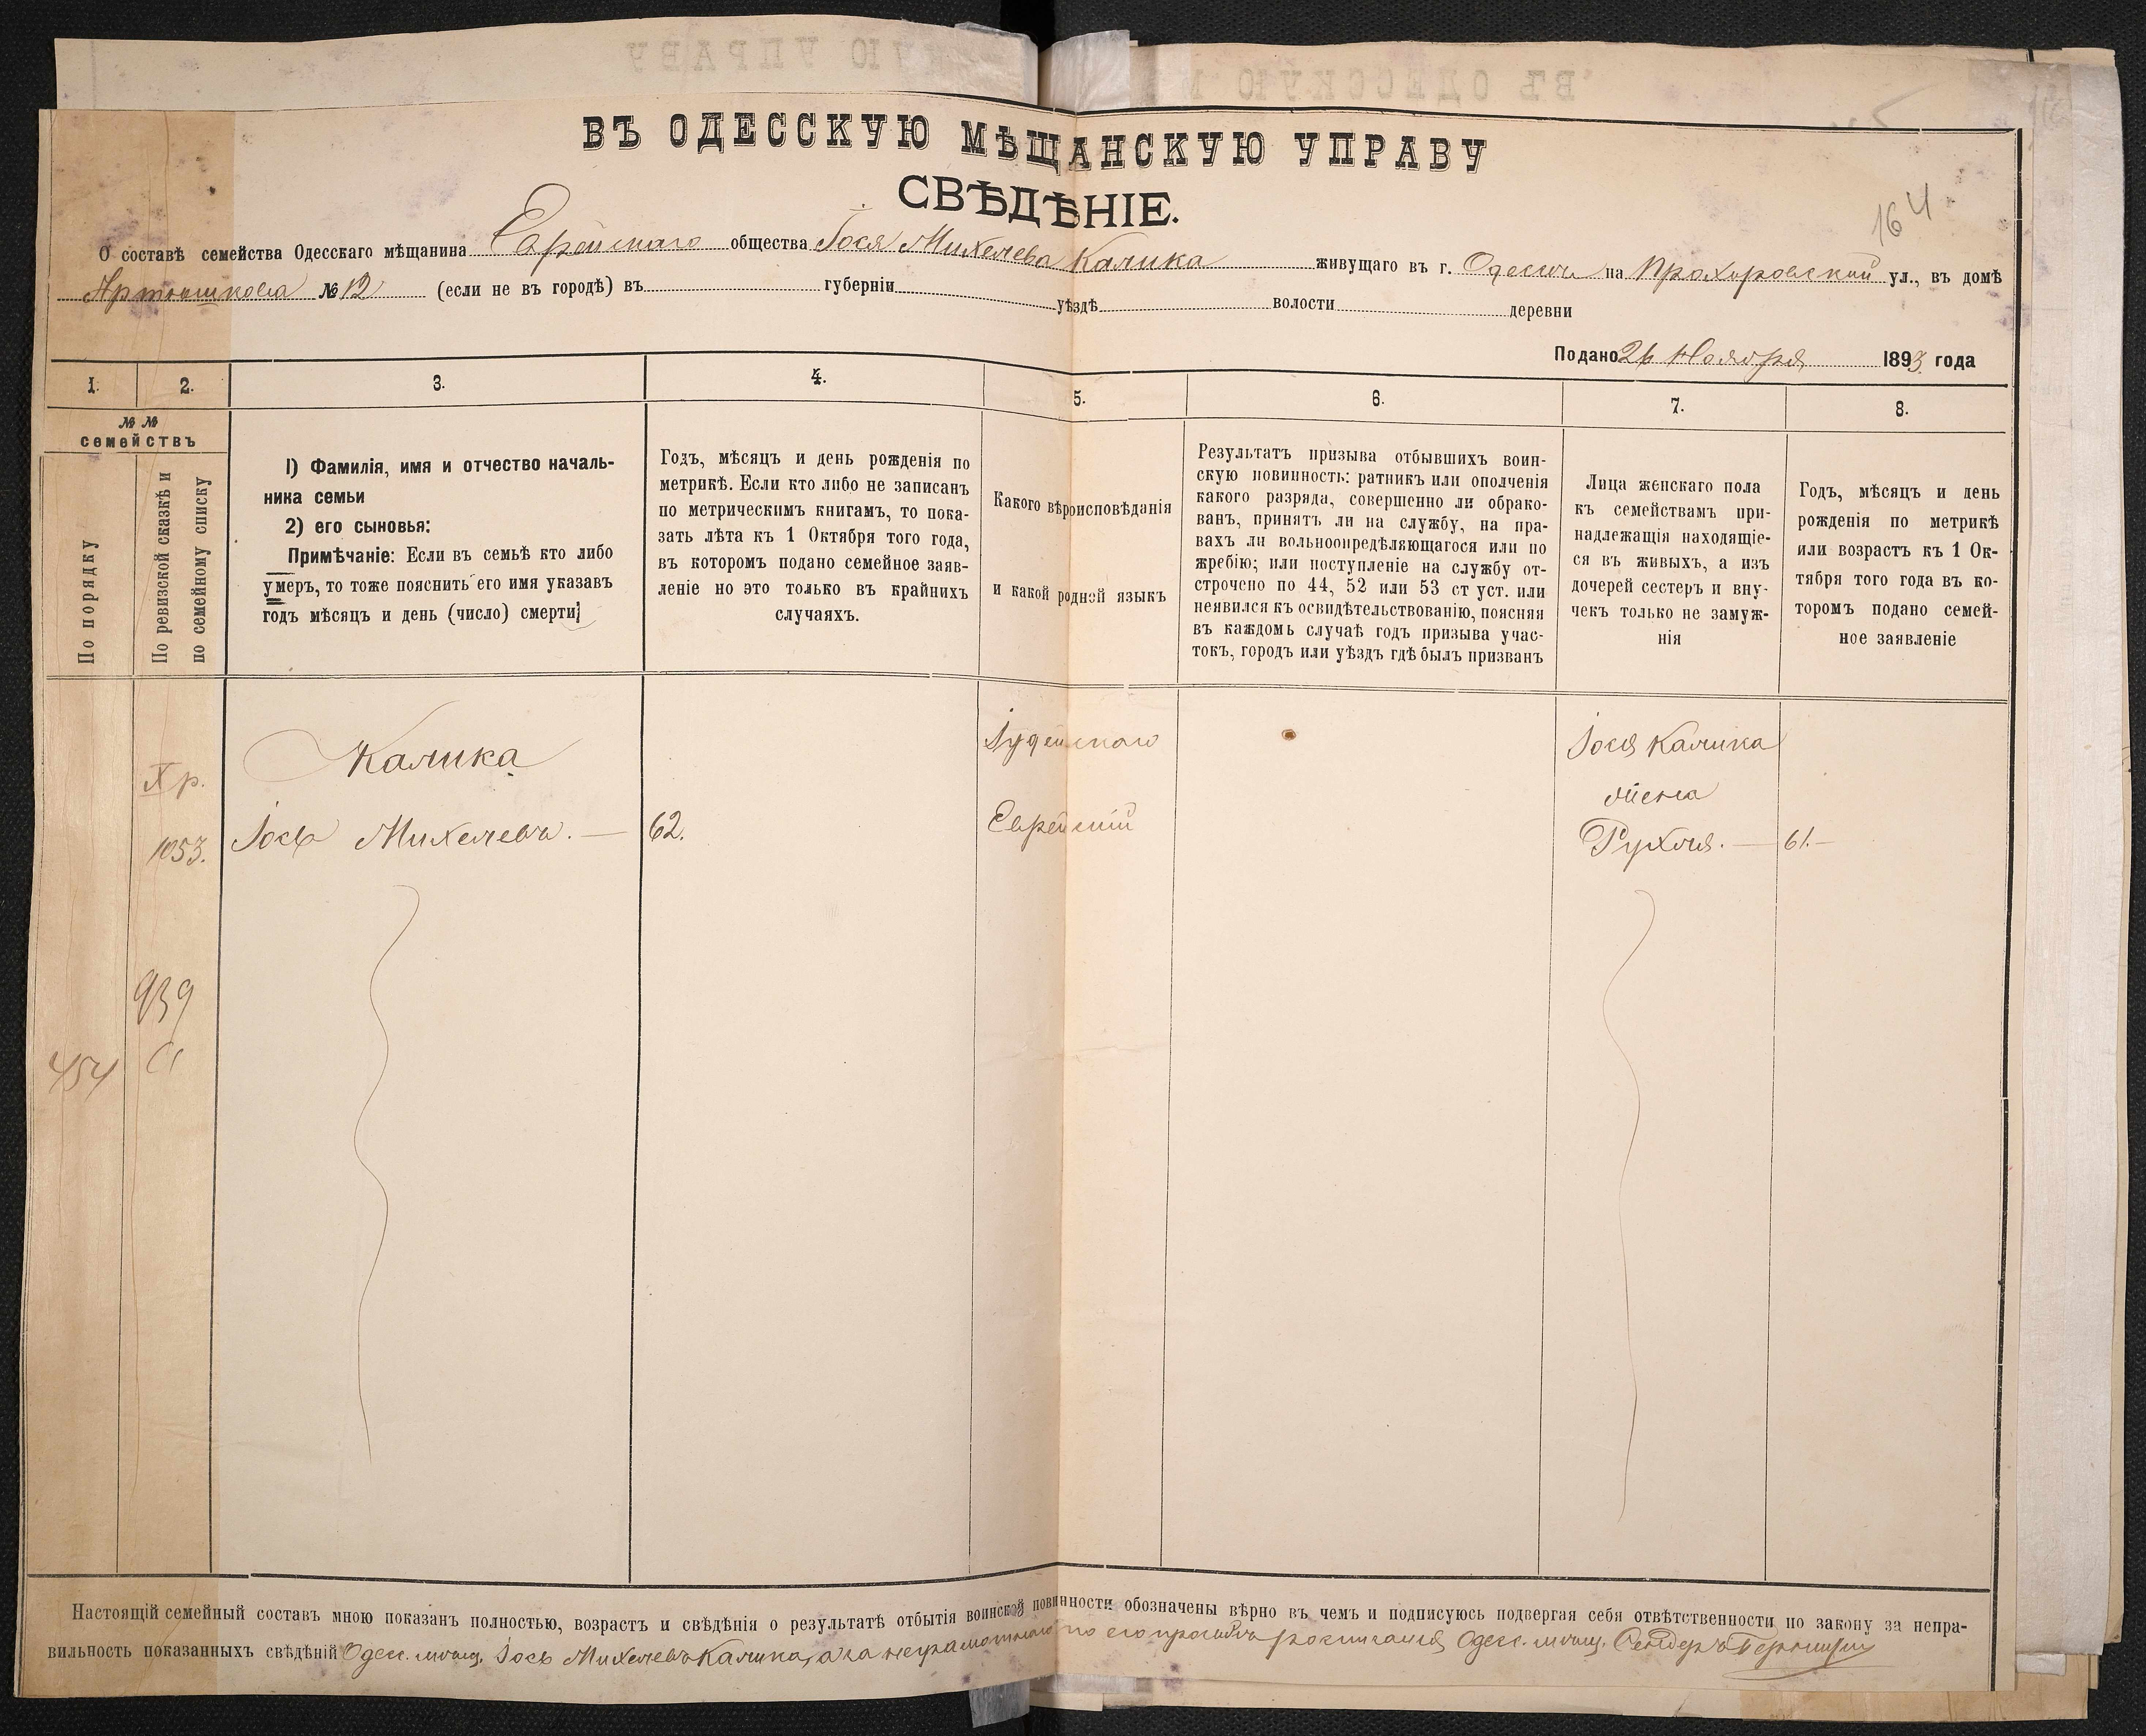 ВЪ ОДЕССКУЮ МѢЩАНСКУЮ УПРАВУ
СВѢДѢНІЕ.
164
О составѣ семейства Одесскаго мѣщанина Еврейскаго общества Іося Михелева Калика живущаго въ г. Одессѣ на Прохоровской ул., въ домѣ
Артюшкова № 12 (если не въ городѣ) въ губерніи уѣздѣ волости деревни
Подано 26 Ноября 1893 года
1. 2. 3. 4. 5. 6. 7. 8.
№ №
семействъ
По порядку
По ревизской сказкѣ и
по семейному списку
1) Фамилія, имя и отчество началь-
ника семьи
2) его сыновья:
Примѣчаніе: Если въ семьѣ кто либо
умеръ, то тоже пояснить его имя указавъ
годъ мѣсяцъ и день (число) смерти
Годъ, мѣсяцъ и день рожденія по
метрикѣ. Если кто либо не записанъ
по метрическимъ книгамъ, то пока-
зать лѣта къ 1 Октября того года,
въ которомъ подано семейное заяв-
леніе но это только въ крайнихъ
случаяхъ.
Какого вѣроисповѣданія
и какой родной языкъ
Результатъ призыва отбывшихъ воин-
скую повинность: ратникъ или ополченія
какого разряда, совершенно ли обрако-
ванъ, принятъ ли на службу, на пра-
вахъ ли вольноопредѣляющагося или по
жребію; или поступленіе на службу от-
строчено по 44, 52 или 53 ст уст. или
неявился къ освидѣтельствованію, поясняя
въ каждомъ случаѣ годъ призыва учас-
токъ, городъ или уѣздъ гдѣ былъ призванъ
Лица женскаго пола
къ семействамъ при-
надлежащія находящіе-
ся въ живыхъ, а изъ
дочерей сестеръ и вну-
чекъ только не замуж-
нія
Годъ, мѣсяцъ и день
рожденія по метрикѣ
или возрастъ къ 1 Ок-
тября того года въ ко-
торомъ подано семей-
ное заявленіе
Хр.
Калика
Іудейскаго
Іося Калика
жена
1053. Іось Михелевъ. — 62. Еврейскій Рухля. — 61. —
939
454
Настоящій семейный составъ мною показанъ полностью, возрастъ и свѣдѣнія о результатѣ отбытія воинской повинности обозначены вѣрно въ чемъ и подписуюсь подвергая себя отвѣтственности по закону за непра-
вильность показанныхъ свѣдѣній Одес. мѣщ. Іось Михелевъ Калика, а за неграмотнаго по его просьбѣ росписался Одес. мѣщ. Сендеръ